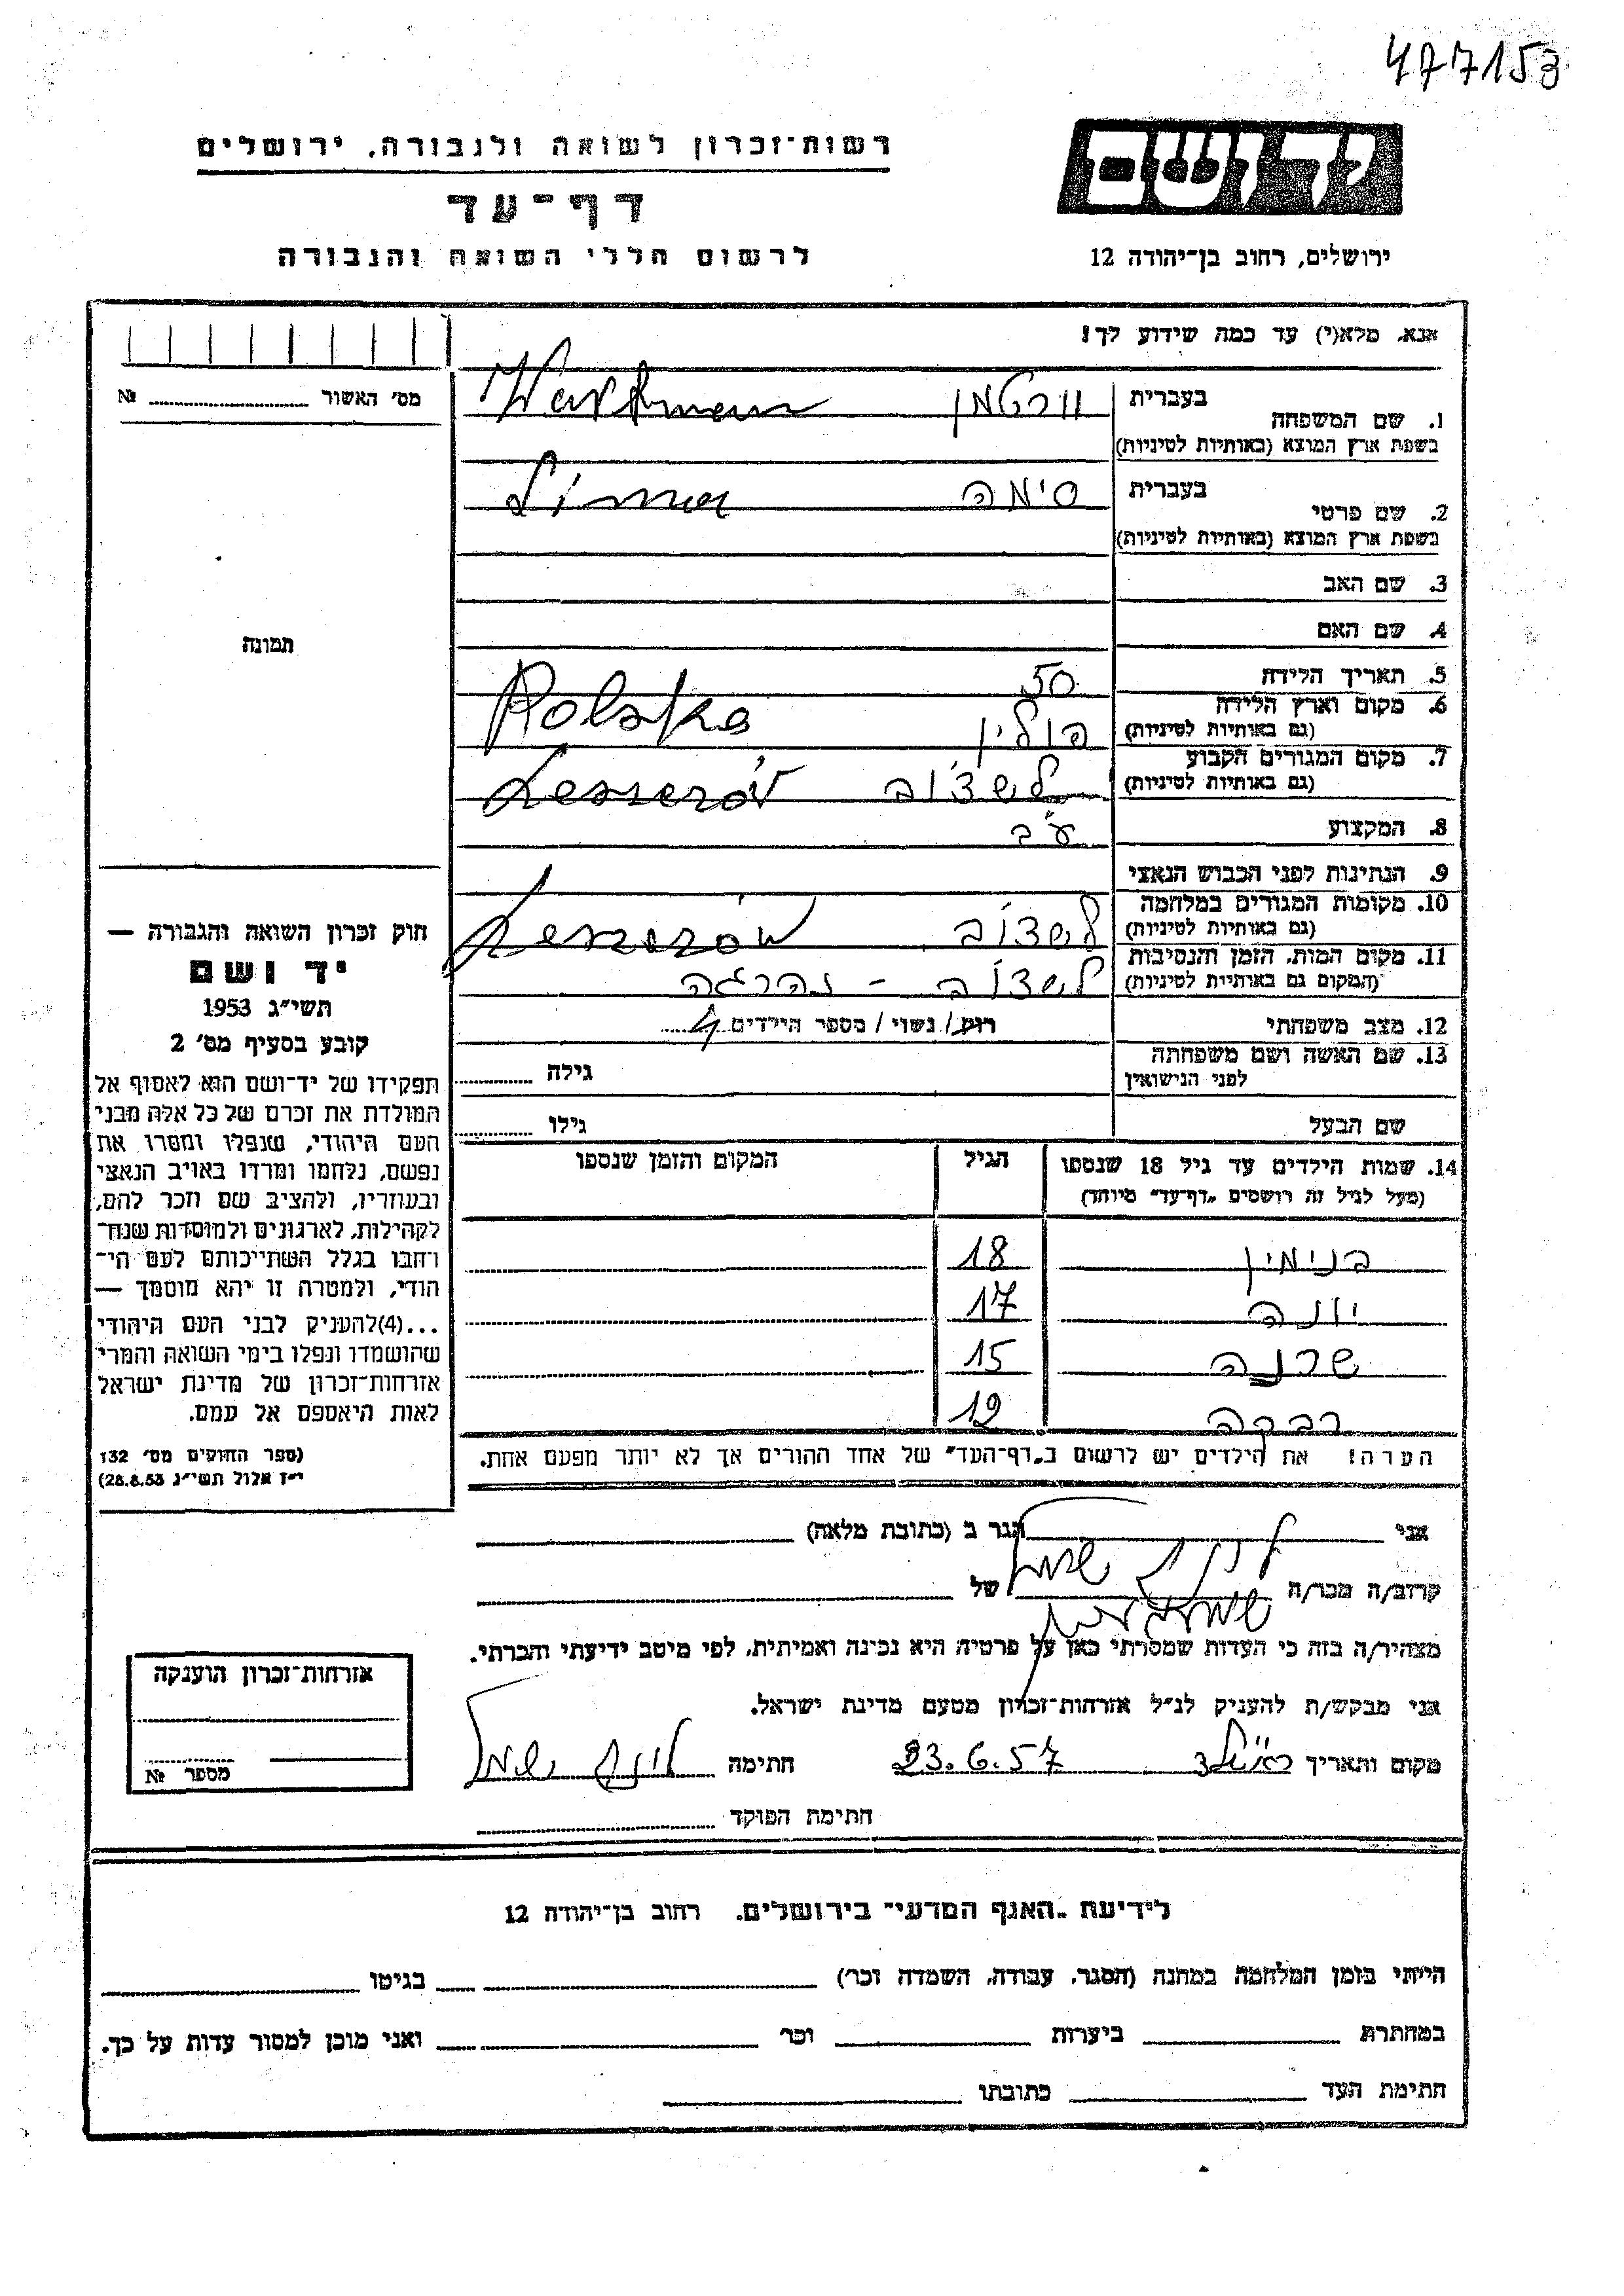 477153
יד ושם
רשות־זכרון לשואה ולגבורה, ירושלים
דף־עד
לרשום חללי השואה והגבורה
ירושלים, רחוב בן־יהודה 12
אנא, מלא(י) עד כמה שידוע לך!
מס' האשור № 
1. שם המשפחה
בעברית וורטמן Wartman
בשפת ארץ המוצא (באותיות לטיניות)
2. שם פרטי
בעברית סימה Sima
בשפת ארץ המוצא (באותיות לטיניות)
3. שם האב
4. שם האם
5. תאריך הלידה 50
6. מקום וארץ הלידה
(גם באותיות לטיניות) פולין Polska
7. מקום המגורים הקבוע
(גם באותיות לטיניות)
8. המקצוע ע"ב
9. הנתינות לפני הכבוש הנאצי
10. מקומות המגורים במלחמה
(גם באותיות לטיניות)
11. מקום המות, הזמן והנסיבות
(המקום גם באותיות לטיניות) - נהרגה
12. מצב משפחתי רווק/ נשוי/ מספר הילדים 4
13. שם האשה ושם משפחתה
לפני הנישואין גילה
שם הבעל גילו
14. שמות הילדים עד גיל 18 שנספו הגיל המקום והזמן שנספו
(מעל לגיל זה רושמים "דף־עד" מיוחד)
בנימין 18
יונה 17
שרנה 15
רבקה 12
הערה! את הילדים יש לרשום ב"דף־העד" של אחד ההורים אך לא יותר מפעם אחת.
תמונה
חוק זכרון השואה והגבורה —
יד ושם
תשי"ג 1953
קובע בסעיף מס' 2
תפקידו של יד־ושם הוא לאסוף אל
המולדת את זכרם של כל אלה מבני
העם היהודי, שנפלו ומסרו את
נפשם, נלחמו ומרדו באויב הנאצי
ובעוזריו, ולהציב שם וזכר להם,
לקהילות, לארגונים ולמוסדות שנח־
רבו בגלל השתייכותם לעם הי־
הודי, ולמטרה זו יהא מוסמך —
...(4)להעניק לבני העם היהודי
שהושמדו ונפלו בימי השואה והמרי
אזרחות־זכרון של מדינת ישראל
לאות היאספם אל עמם.
(ספר החוקים מס' 132
י"ז אלול תשי"ג 28.8.53)
אני הגר ב (כתובת מלאה)
קרוב/ה מכר/ה של
מצהיר/ה בזה כי העדות שמסרתי כאן על פרטיה היא נכונה ואמיתית, לפי מיטב ידיעתי והכרתי.
אני מבקש/ת להעניק לנ"ל אזרחות־זכרון מטעם מדינת ישראל.
מקום ותאריך 23.6.57 חתימה
חתימת הפוקד
אזרחות־זכרון הוענקה
מספר №
לידיעת "האגף המדעי" בירושלים, רחוב בן־יהודה 12
הייתי בזמן המלחמה במחנה (הסגר, עבודה, השמדה וכו') בגיטו
במחתרת ביערות וכו' ואני מוכן למסור עדות על כך.
חתימת העד כתובתו